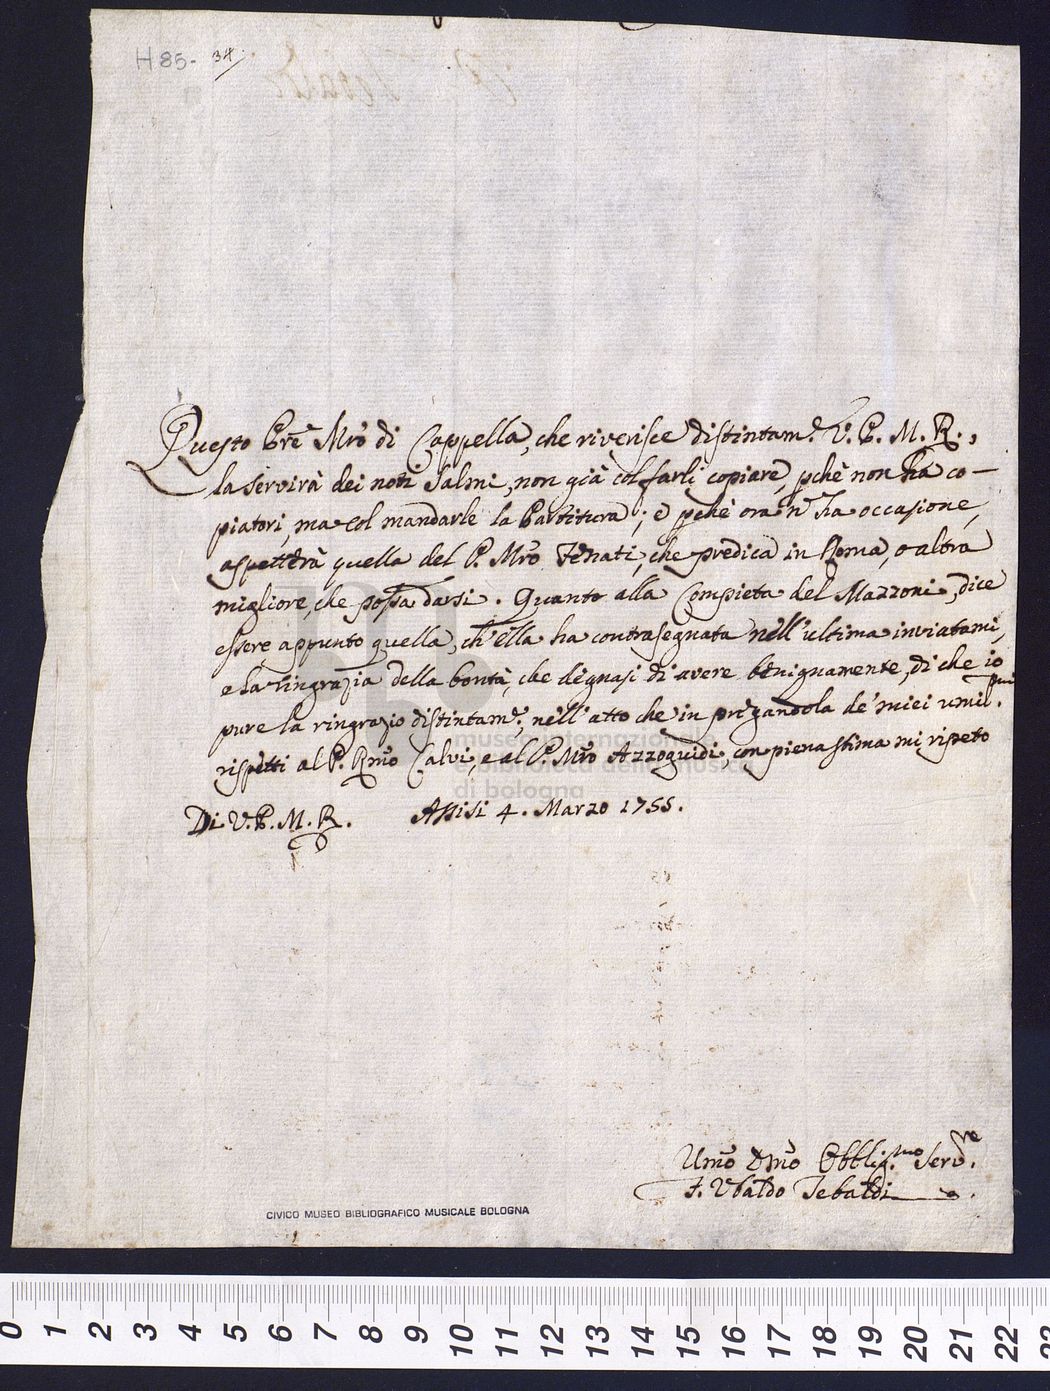 H 85. 34
Questo Pre Mro di Cappella, che riverisce distintam.e V. P. M. R.,
la servirà dei noti Salmi, non già col farli copiare, pchè non ha co-
piatori, ma col mandarle la Partitura; e pchè ora n ha occasione,
aspetterà quella del P. Mro Tenati, che predica in Roma, o altra
migliore, che possa darsi. Quanto alla Compieta del Mazzoni, dice
essere appunto quella, ch'ella ha contrasegnata nell'ultima inviatami,
e La ringrazia della bontà, che degnasi di avere benignamente, di che io
pure la ringrazio distintam.e nell'atto che in pregandola de' miei umil.mi
rispetti al P. Rmo Calvi, e al P. Mro Azzoguidi, con piena stima mi ripeto
Di V. P. M. R. Assisi 4. Marzo 1755.
museo internazionale
e biblioteca della musica
di bologna
Umo Dmo Obblig.mo Serv.re
F. Ubaldo Tebaldi
CIVICO MUSEO BIBLIOGRAFICO MUSICALE BOLOGNA
0 1 2 3 4 5 6 7 8 9 10 11 12 13 14 15 16 17 18 19 20 21 22 23